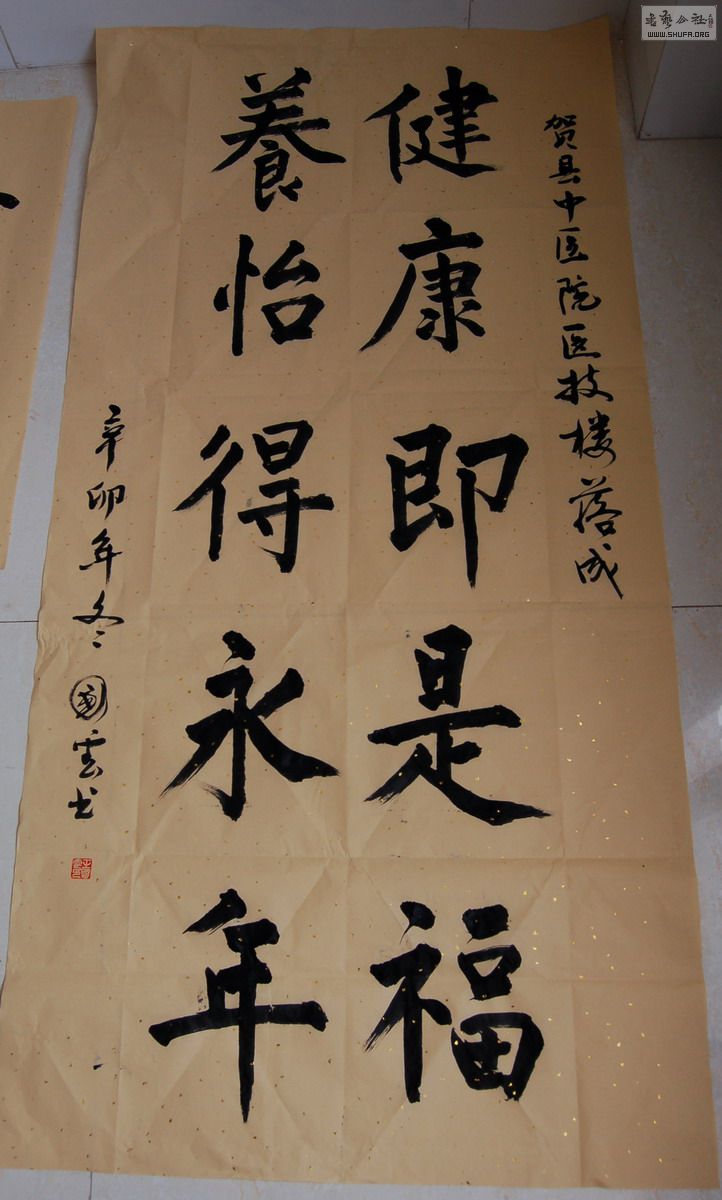 贺县中医院医技楼落成
健康即是福
養怡得永年
辛卯年冬国雲书
WWW.SHUFA.ORG